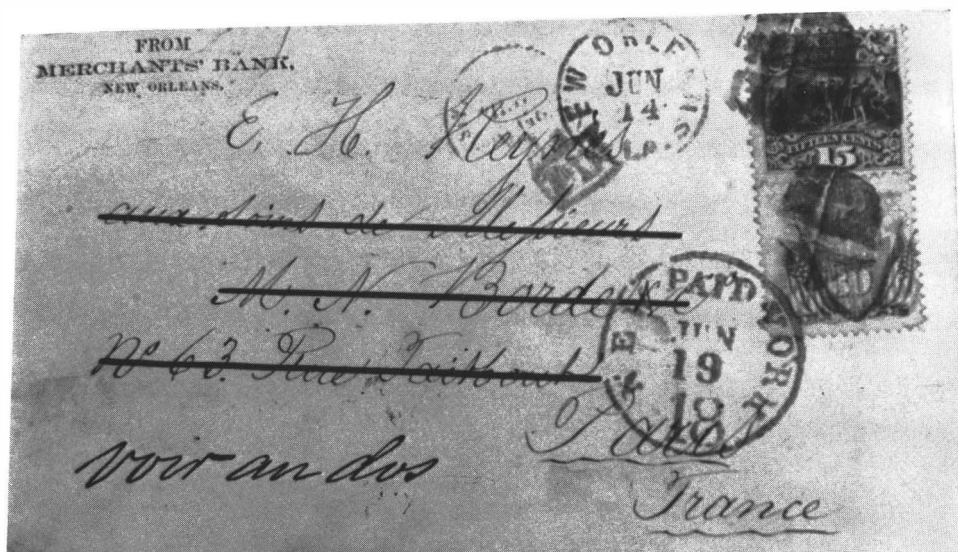 FROM
MERCHANTS' BANK,
NEW ORLEANS.
NEW ORLE
JUN
14
La.
FIFTEEN CENTS
15
E. H.
aux soins de Messieurs
M. N.
No 63. Rue Taitbout
NEW PAID YORK
JUN
19
Paris
France
voir au dos
30